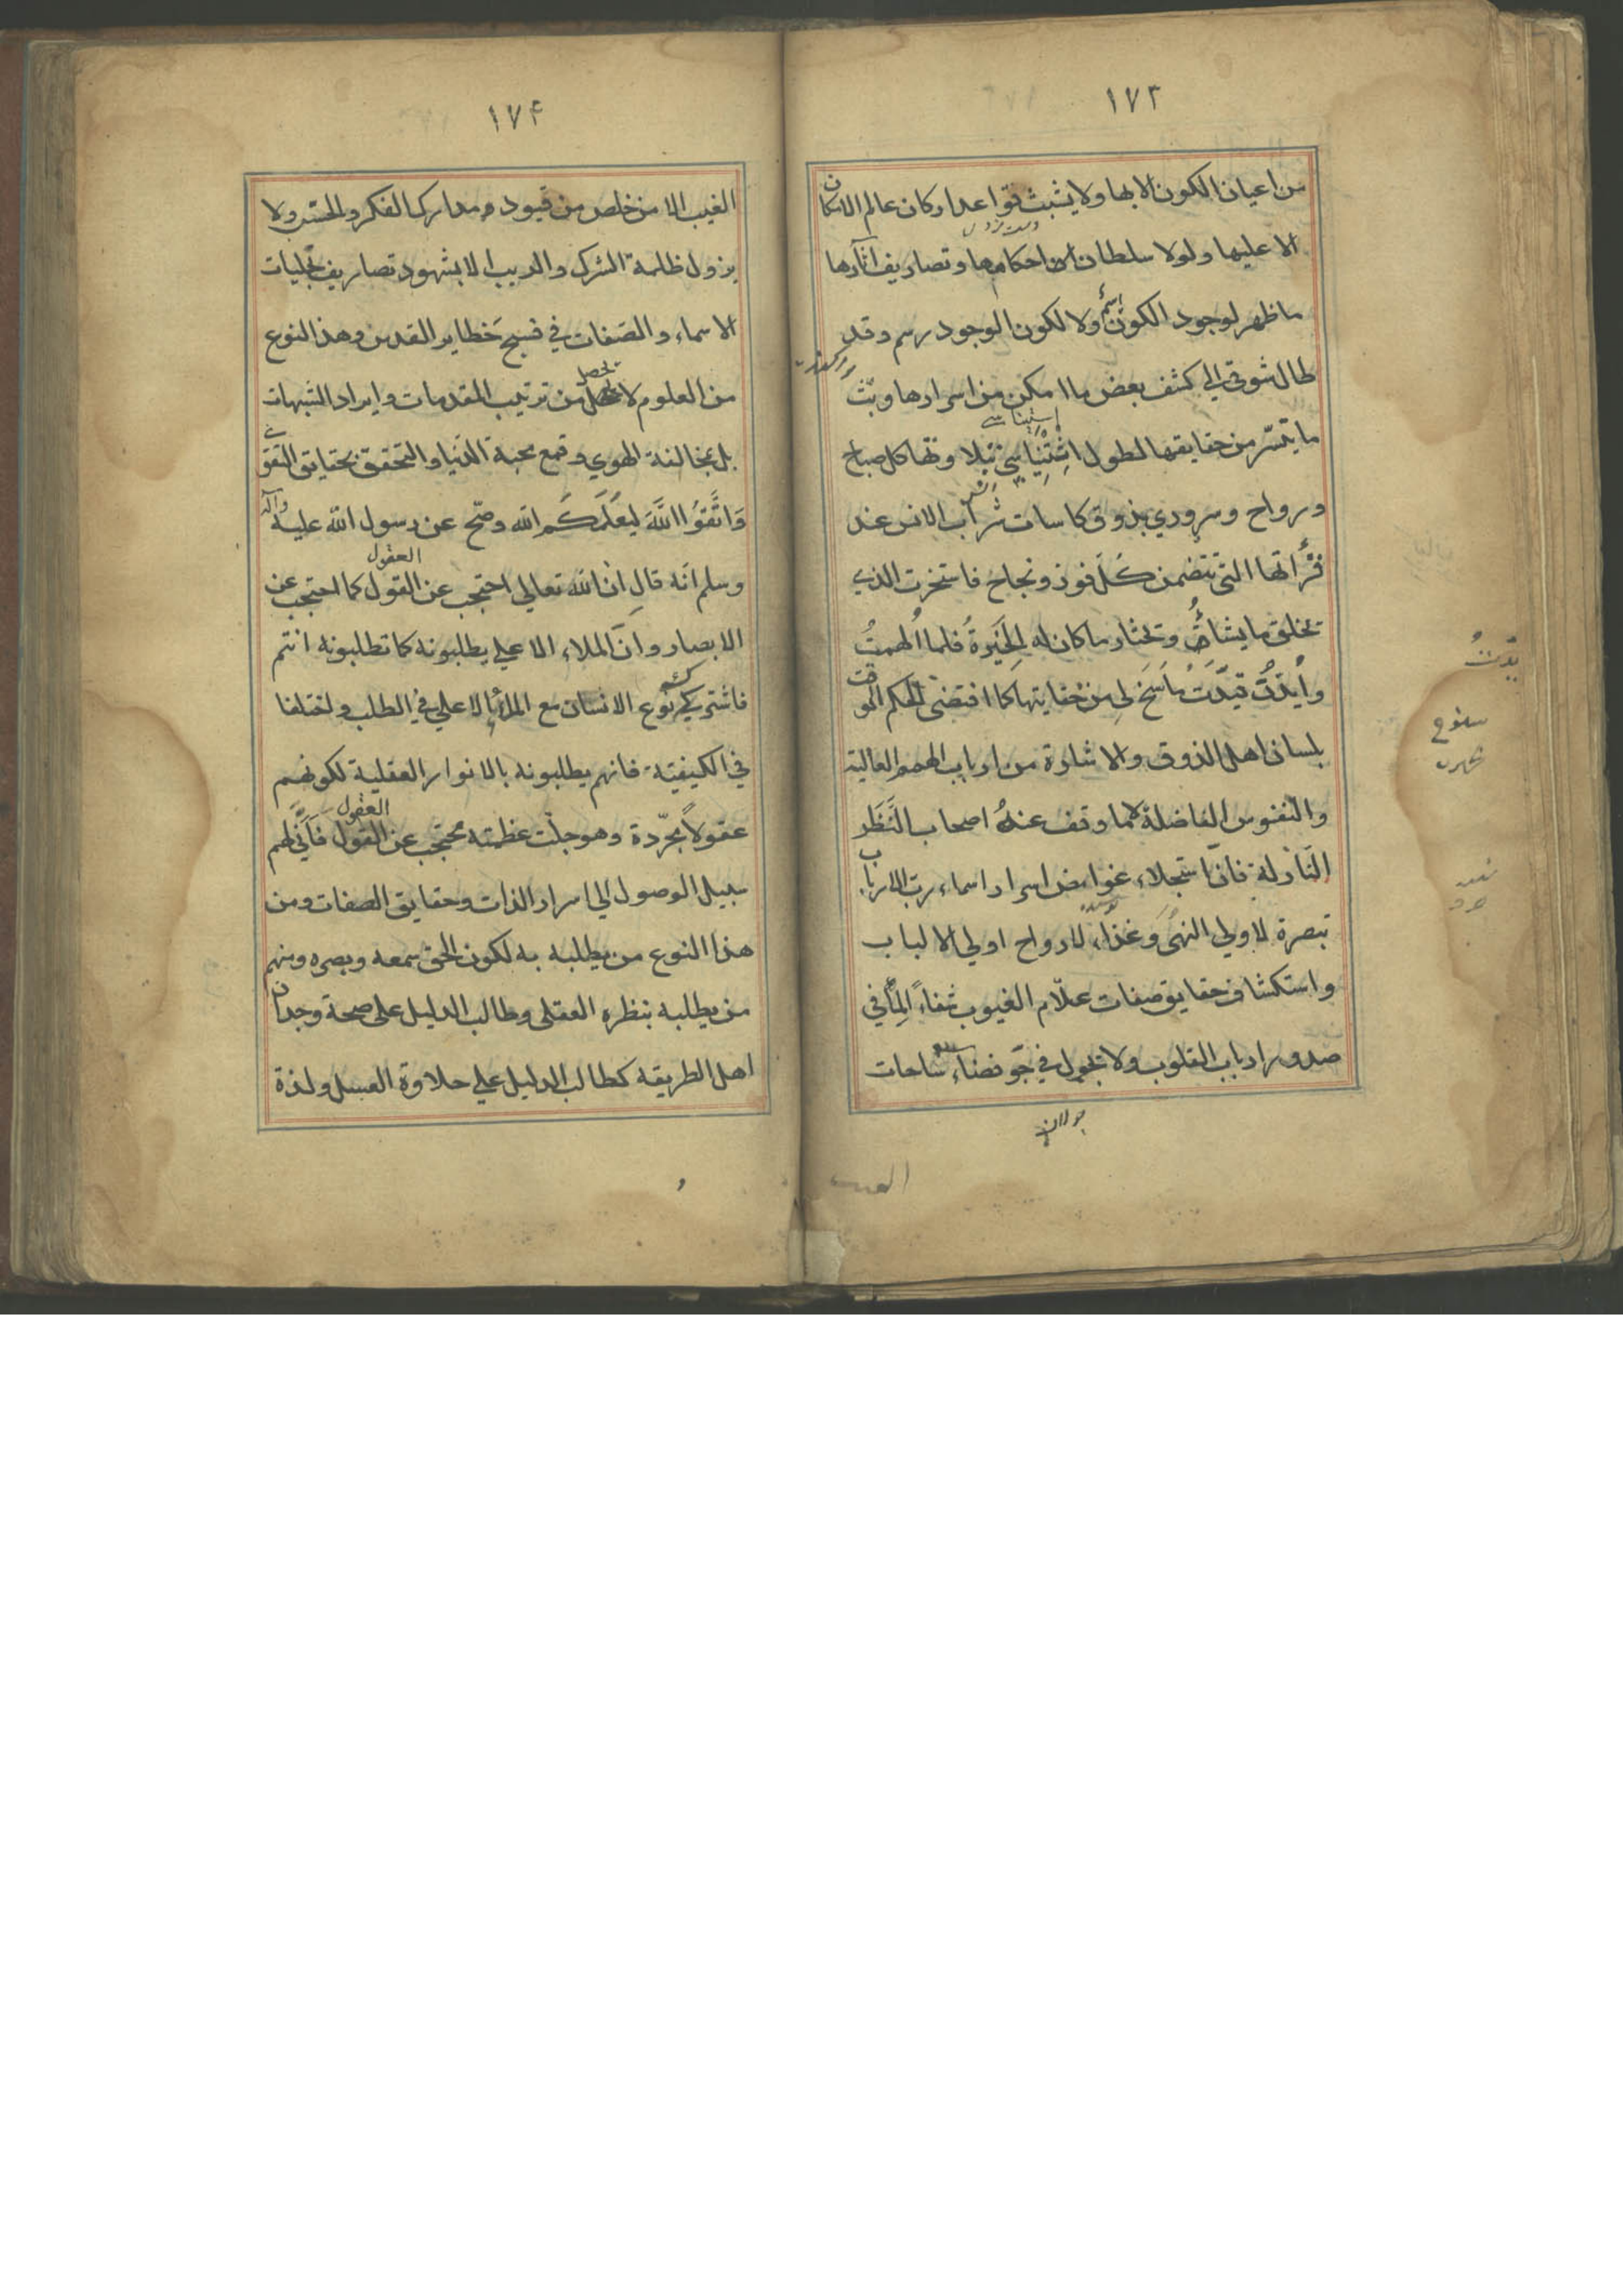 ١٧٣
من اعيان الكون الا بها ولا يثبث قواعد اركان عالم الامكان
الا عليها ولولا سلطان احكامها وتصاريف اثارها
ما ظهر لوجود الكون اسم ولا لكون الوجود رسم وقد
طال شوقي الي كشف بعض ما امكن من اسرارها وبث
ما يتسر من حقايقها لطول استيناسي بتلاوتها كل صباح
ورواح وسروري بذوق كاسات شراب الانس عند
قرأتها التي تتضمن كل فوز ونجاح فاستخرت الذي
يخلق ما يشاء ويختار ما كان لهم الخيرة فلما الهمت
وايدت قيدت ما سنح لي من حقايقها كما اقتضى الحكم الوقت
بلسان اهل الذوق والاشارة من ارباب الهمم العالية
والنفوس الفاضلة لا مما وقف عنده اصحاب النظر
النازلة فان استجلاء غوامض اسرار اسماء رب الارباب
تبصرة لاولي النهى وغذاء لارواح اولي الالباب
واستكشاف حقايق صفات علام الغيوب شفاء لما في
صدور ارباب القلوب ولا يجول في جو فضاء ساحات
جولان
الغيب
سنوح
١٧۴
الغيب الا من خلص من قيود مدارك الفكر والحس ولا
يزول ظلمة الشرك والريب الا بشهود تصاريف تجليات
الاسماء والصفات في فسيح خطاير القدس وهذا النوع
من العلوم لا يحصل من ترتيب المقدمات وايراد الشبهات
بل بمخالفة الهوي وقمع محبة الدنيا والتحقق بحقايق التقوى
وَاتَّقُوا اللَّهَ ليعلمكم الله وصح عن رسول الله عليه وآله
وسلم انه قال ان الله تعالي احتجب عن العقول كما احتجب عن
الابصار وان الملاء الاعلي يطلبونه كما تطلبونه انتم
فاشترك نوع الانسان مع الملأ الاعلي في الطلب واختلفا
في الكيفية فانهم يطلبونه بالانوار العقلية لكونهم
عقولاً مجردة وهو جلت عظمته محتجب عن العقول فانى لهم
سبيل الوصول الي اسرار الذات وحقايق الصفات ومن
هذا النوع من يطلبه به لكون الحق سمعه وبصره ومنهم
من يطلبه بنظره العقلى وطالب الدليل على صحة وجدان
اهل الطريقه كطالب الدليل علي حلاوة العسل ولذة